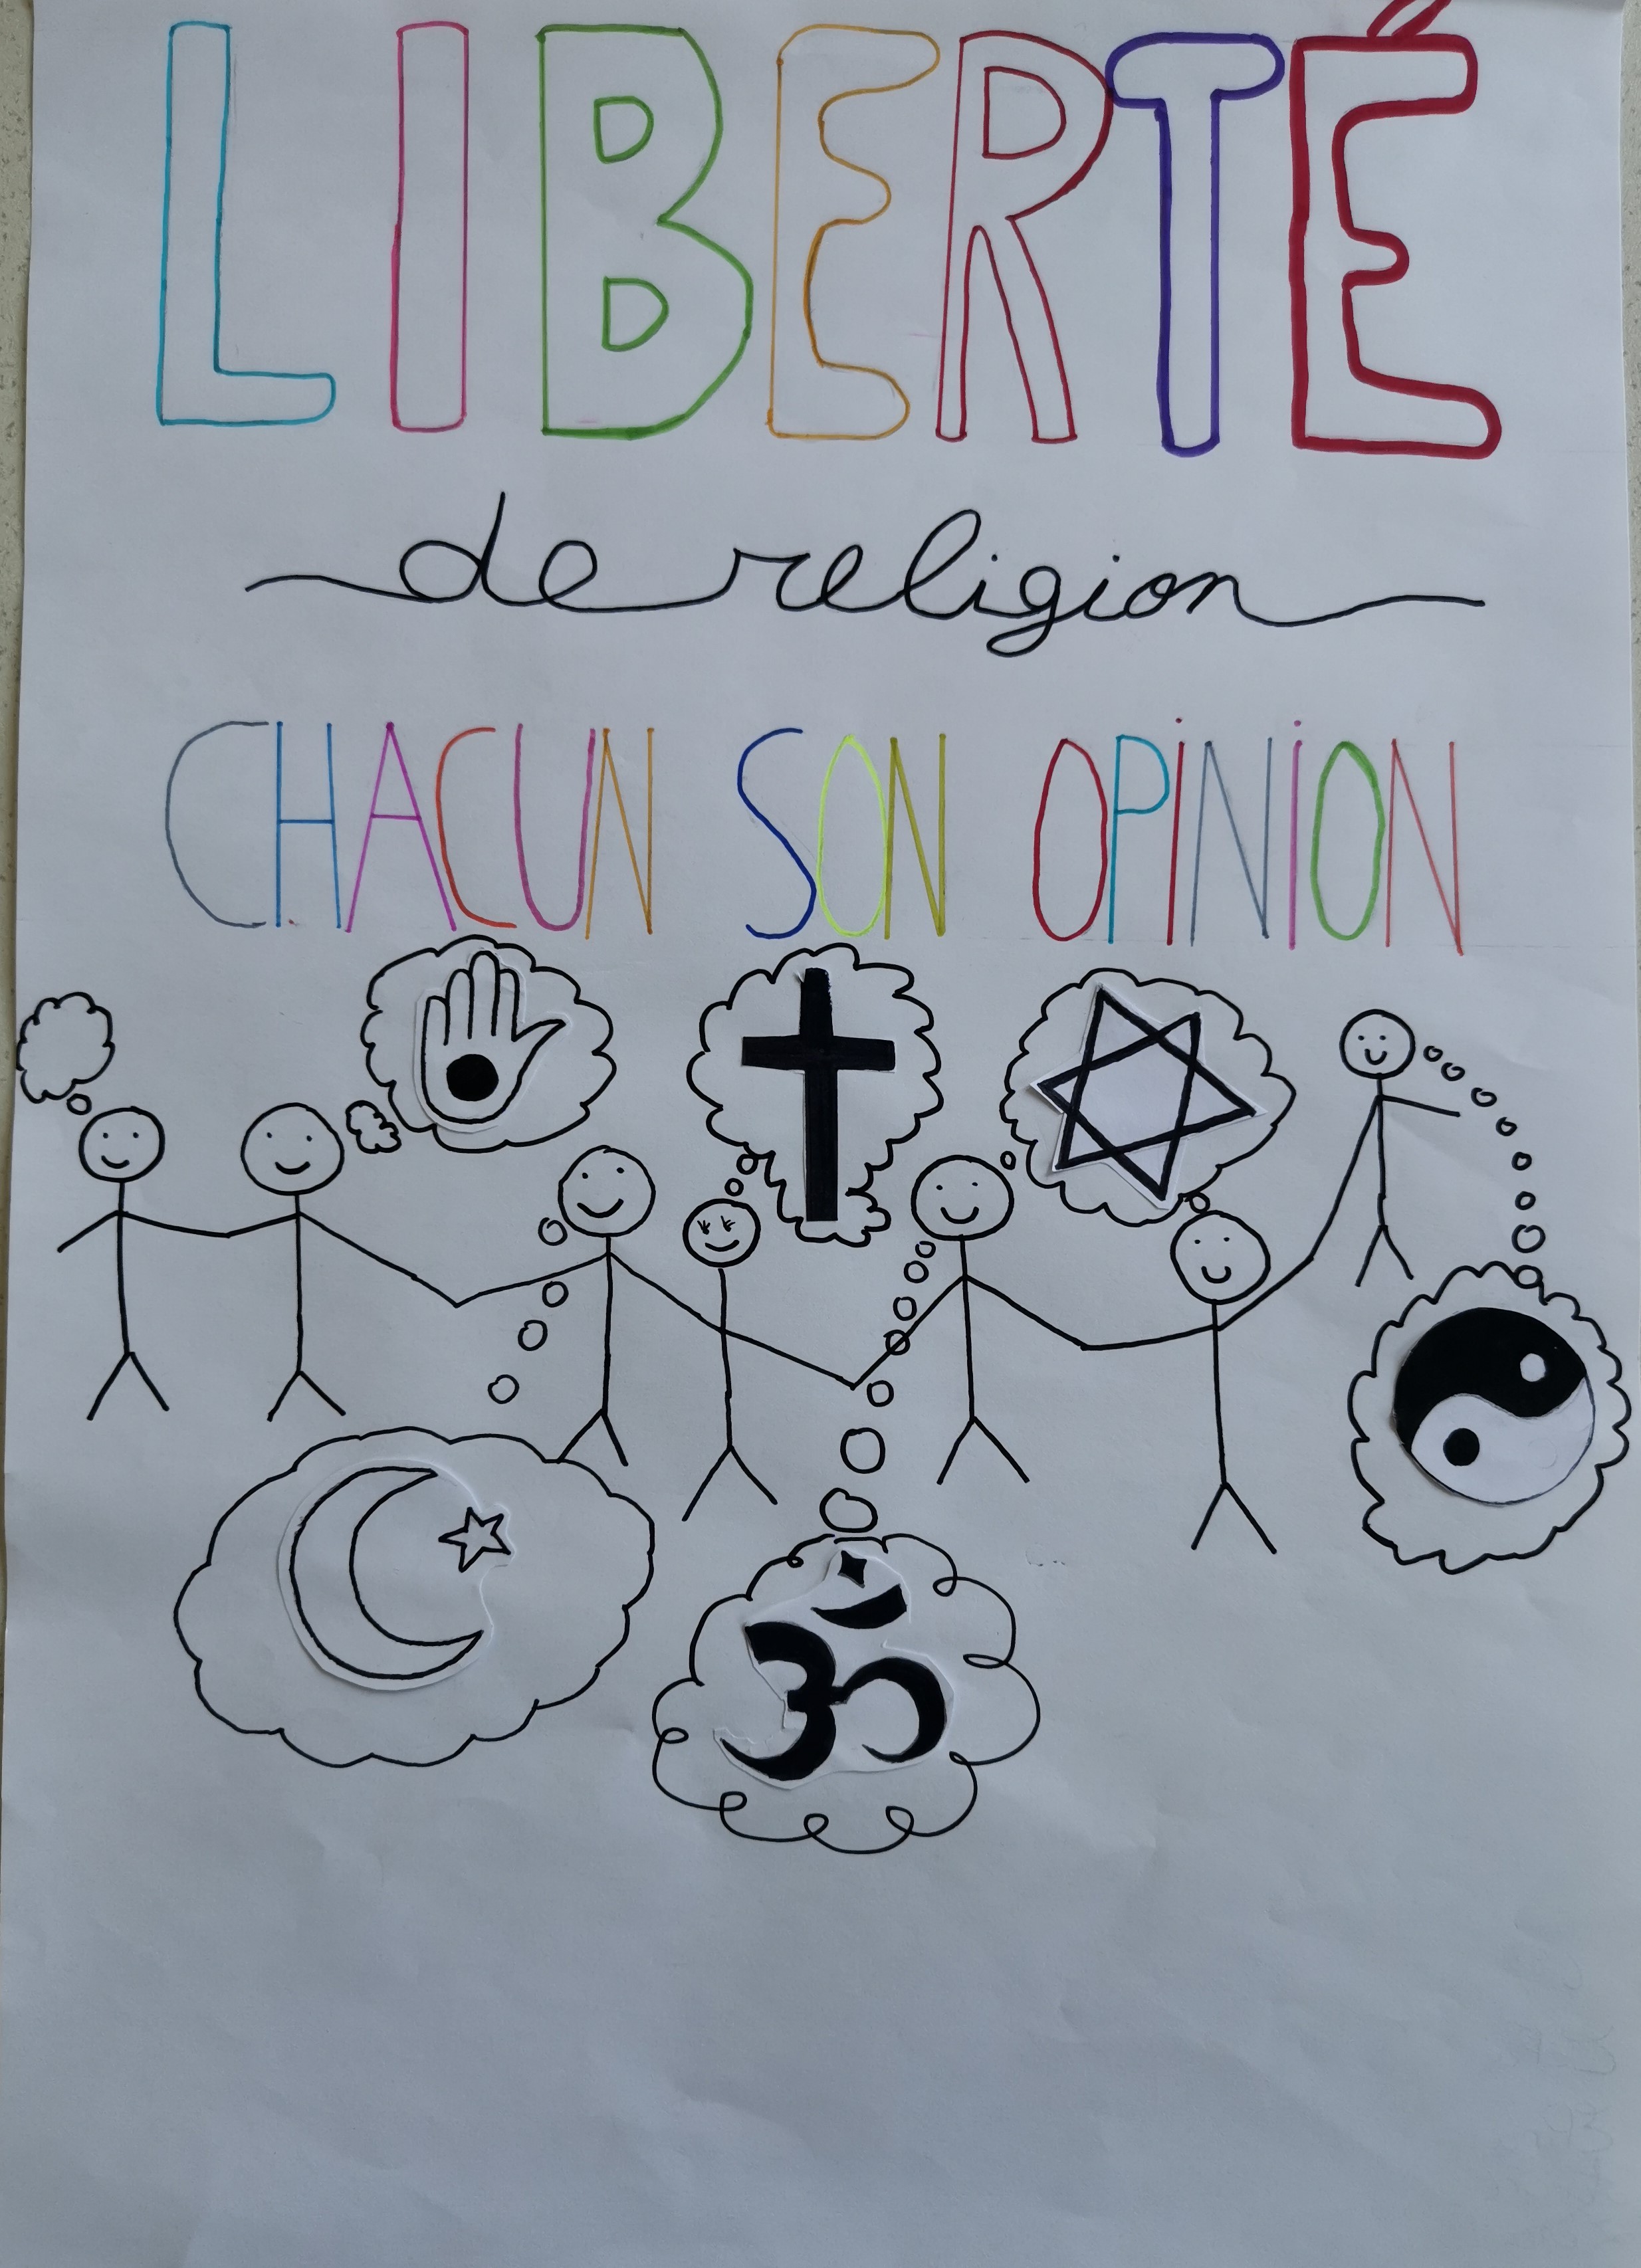 LIBERTÉ
de religion
CHACUN SON OPINION
ॐ